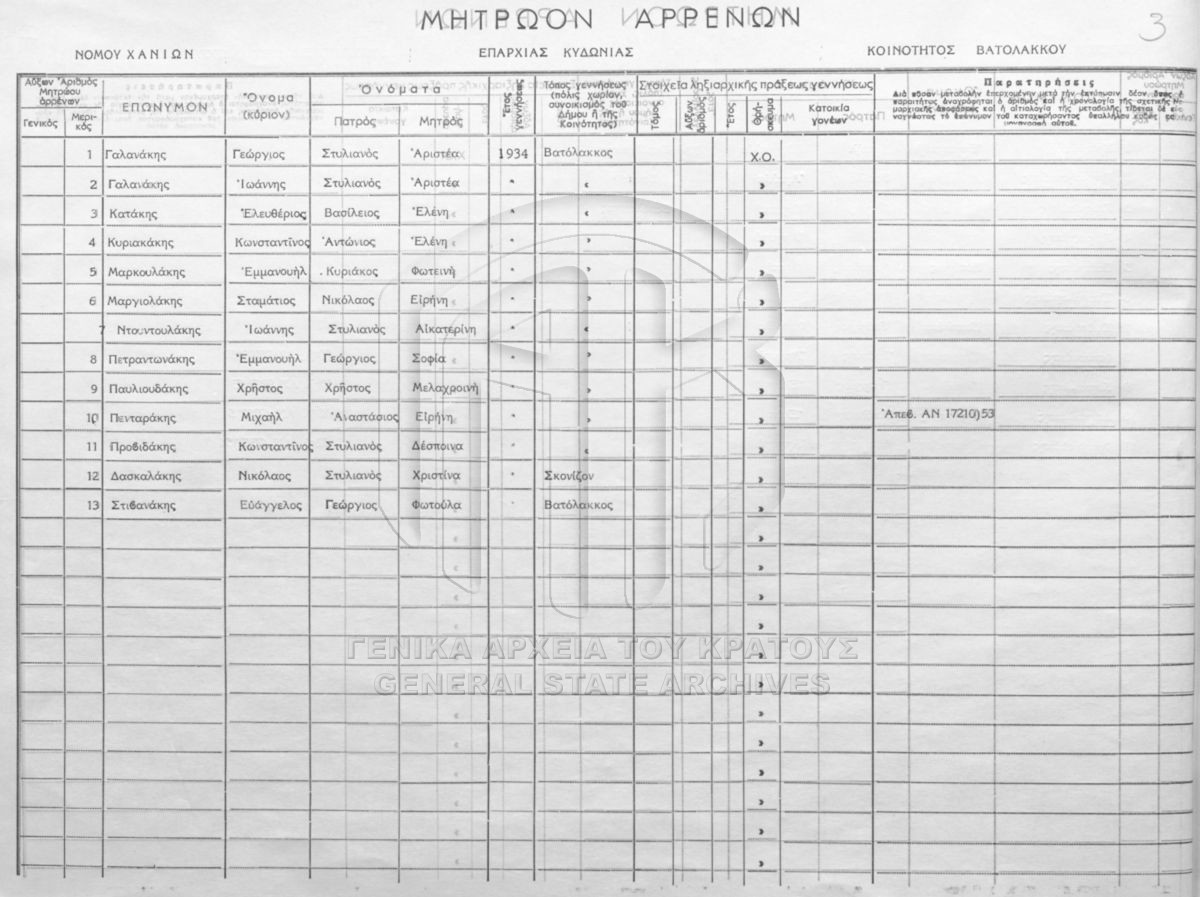 ΜΗΤΡΩΟΝ ΑΡΡΕΝΩΝ
3
ΝΟΜΟΥ ΧΑΝΙΩΝ ΕΠΑΡΧΙΑΣ ΚΥΔΩΝΙΑΣ ΚΟΙΝΟΤΗΤΟΣ ΒΑΤΟΛΑΚΚΟΥ
Αὔξων Ἀριθμὸς Μητρώου ἀρρένων
Γενικὸς Μερικὸς
ΕΠΩΝΥΜΟΝ
Ὄνομα (κύριον)
Ὀνόματα
Πατρὸς Μητρὸς
Ἔτος γεννήσεως
Τόπος γεννήσεως (πόλις χωρίον, συνοικισμὸς τοῦ Δήμου ἢ τῆς Κοινότητος)
Στοιχεῖα ληξιαρχικῆς πράξεως γεννήσεως
Τόμος Αὔξων ἀριθμὸς Ἔτος Θρήσκευμα Κατοικία γονέων
Παρατηρήσεις
1 Γαλανάκης Γεώργιος Στυλιανὸς Ἀριστέα 1934 Βατόλακκος Χ.Ο.
2 Γαλανάκης Ἰωάννης Στυλιανὸς Ἀριστέα " « »
3 Κατάκης Ἐλευθέριος Βασίλειος Ἑλένη " « »
4 Κυριακάκης Κωνσταντῖνος Ἀντώνιος Ἑλένη " » »
5 Μαρκουλάκης Ἐμμανουὴλ Κυριάκος Φωτεινὴ " » »
6 Μαργιολάκης Σταμάτιος Νικόλαος Εἰρήνη " » »
7 Ντουντουλάκης Ἰωάννης Στυλιανὸς Αἰκατερίνη " « »
8 Πετραντωνάκης Ἐμμανουὴλ Γεώργιος Σοφία " » »
9 Παυλιουδάκης Χρῆστος Χρῆστος Μελαχροινὴ " » »
10 Πενταράκης Μιχαὴλ Ἀναστάσιος Εἰρήνη " » » Ἀπεβ. ΑΝ 17210)53
11 Προβιδάκης Κωνσταντῖνος Στυλιανὸς Δέσποινα " « »
12 Δασκαλάκης Νικόλαος Στυλιανὸς Χριστίνα " Σκονίζον »
13 Στιβανάκης Εὐάγγελος Γεώργιος Φωτούλα " Βατόλακκος »
ΓΕΝΙΚΑ ΑΡΧΕΙΑ ΤΟΥ ΚΡΑΤΟΥΣ
GENERAL STATE ARCHIVES